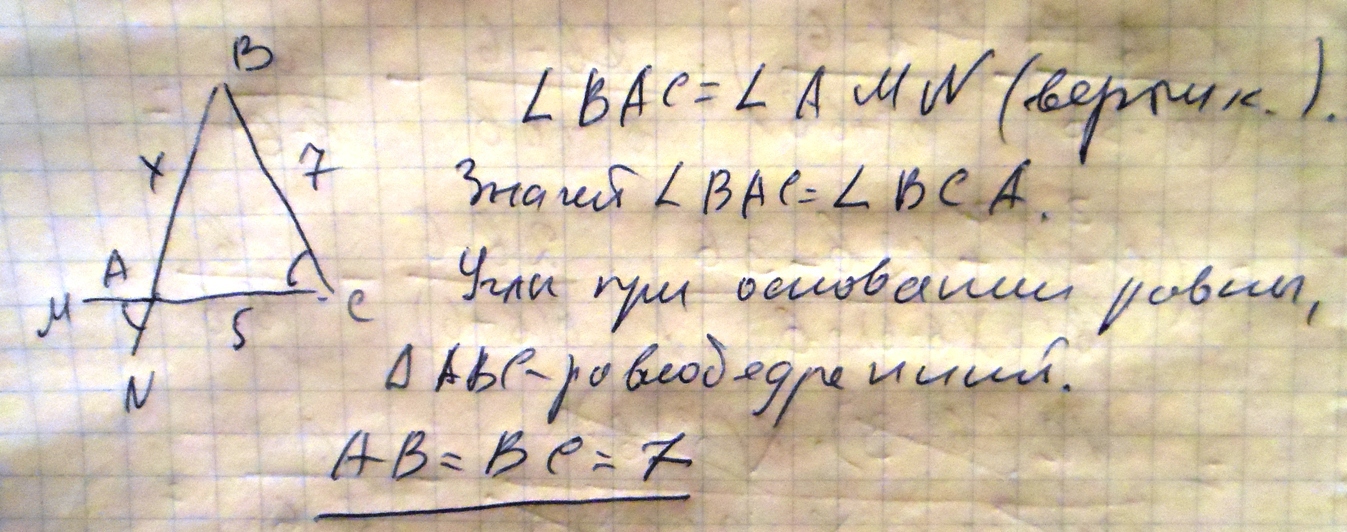 B
∠ BAC = ∠ AMN (вертик.).
x
7
Значит ∠ BAC = ∠ BCA.
A
M
C
5
N
Углы при основании равны,
Δ ABC - равнобедренный.
AB = BC = 7